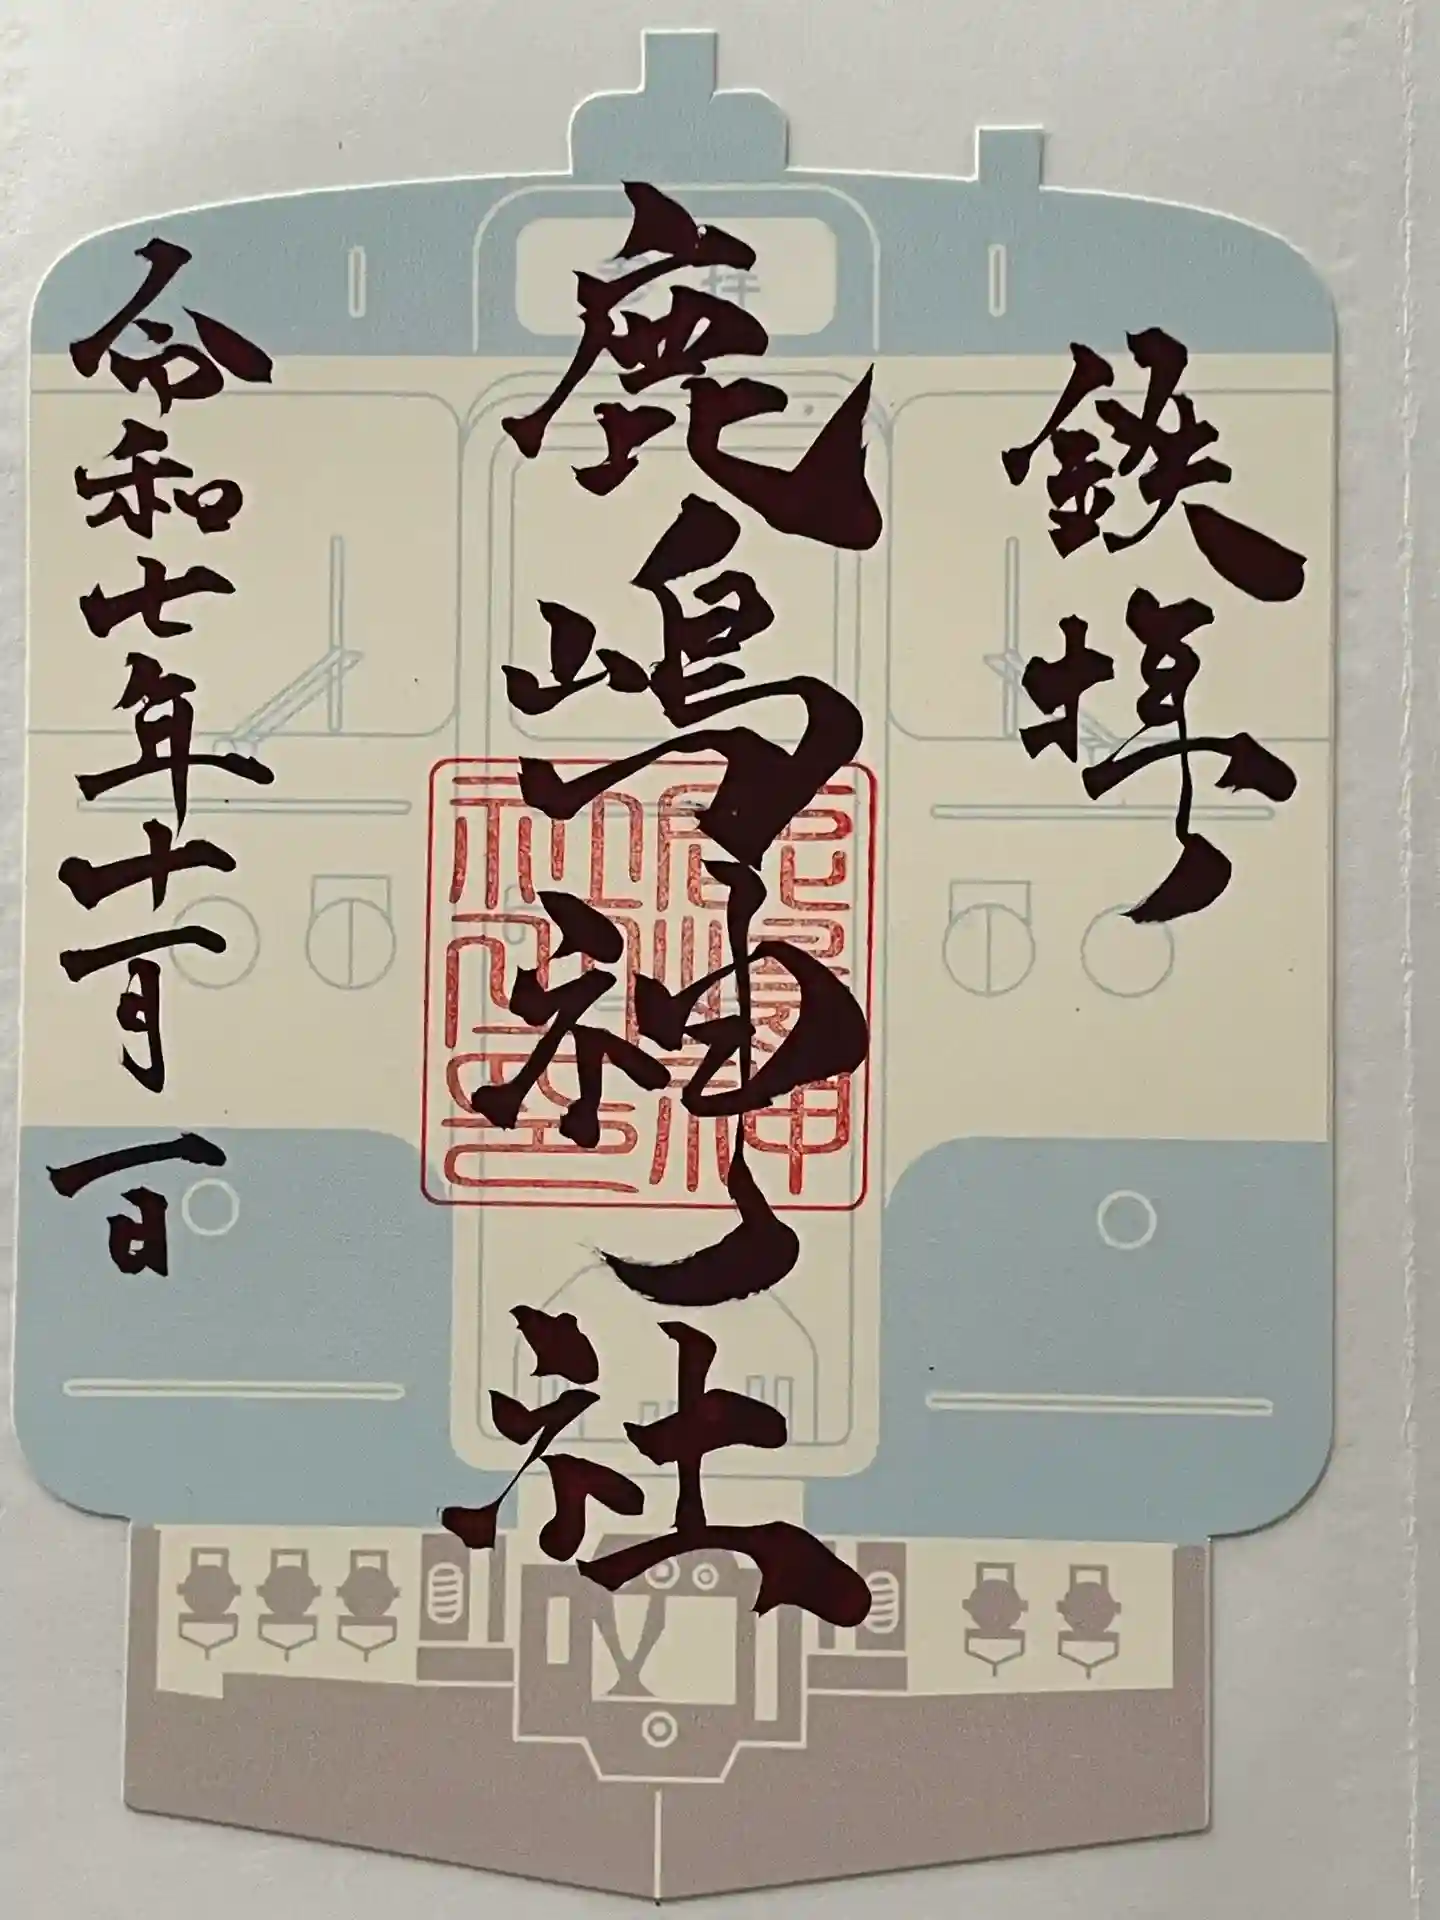 鉄拝
鹿嶋神社
令和七年十一月一日
拝
鹿嶋神
社之印